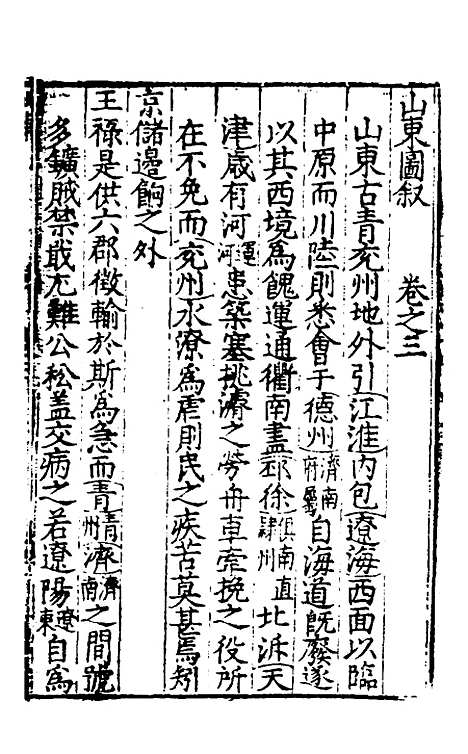 山東圖叙 卷之三
山東古青兖州地外引江淮内包遼海西面以臨
中原而川陸則悉會于德州濟南府屬自海道旣廢遂
以其西境為餽運通衢南盡邳徐俱南直隸州北泝天
津歳有河運河患築塞挑濬之勞舟車牽挽之役所
在不免而兖州水潦為虐則民之疾苦莫甚焉矧
京儲邊餉之外
王禄是供六郡徵輸於斯為急而青青州濟濟南之間號
多鑛賊禁戢尤難公私蓋交病之若遼陽遼東自為